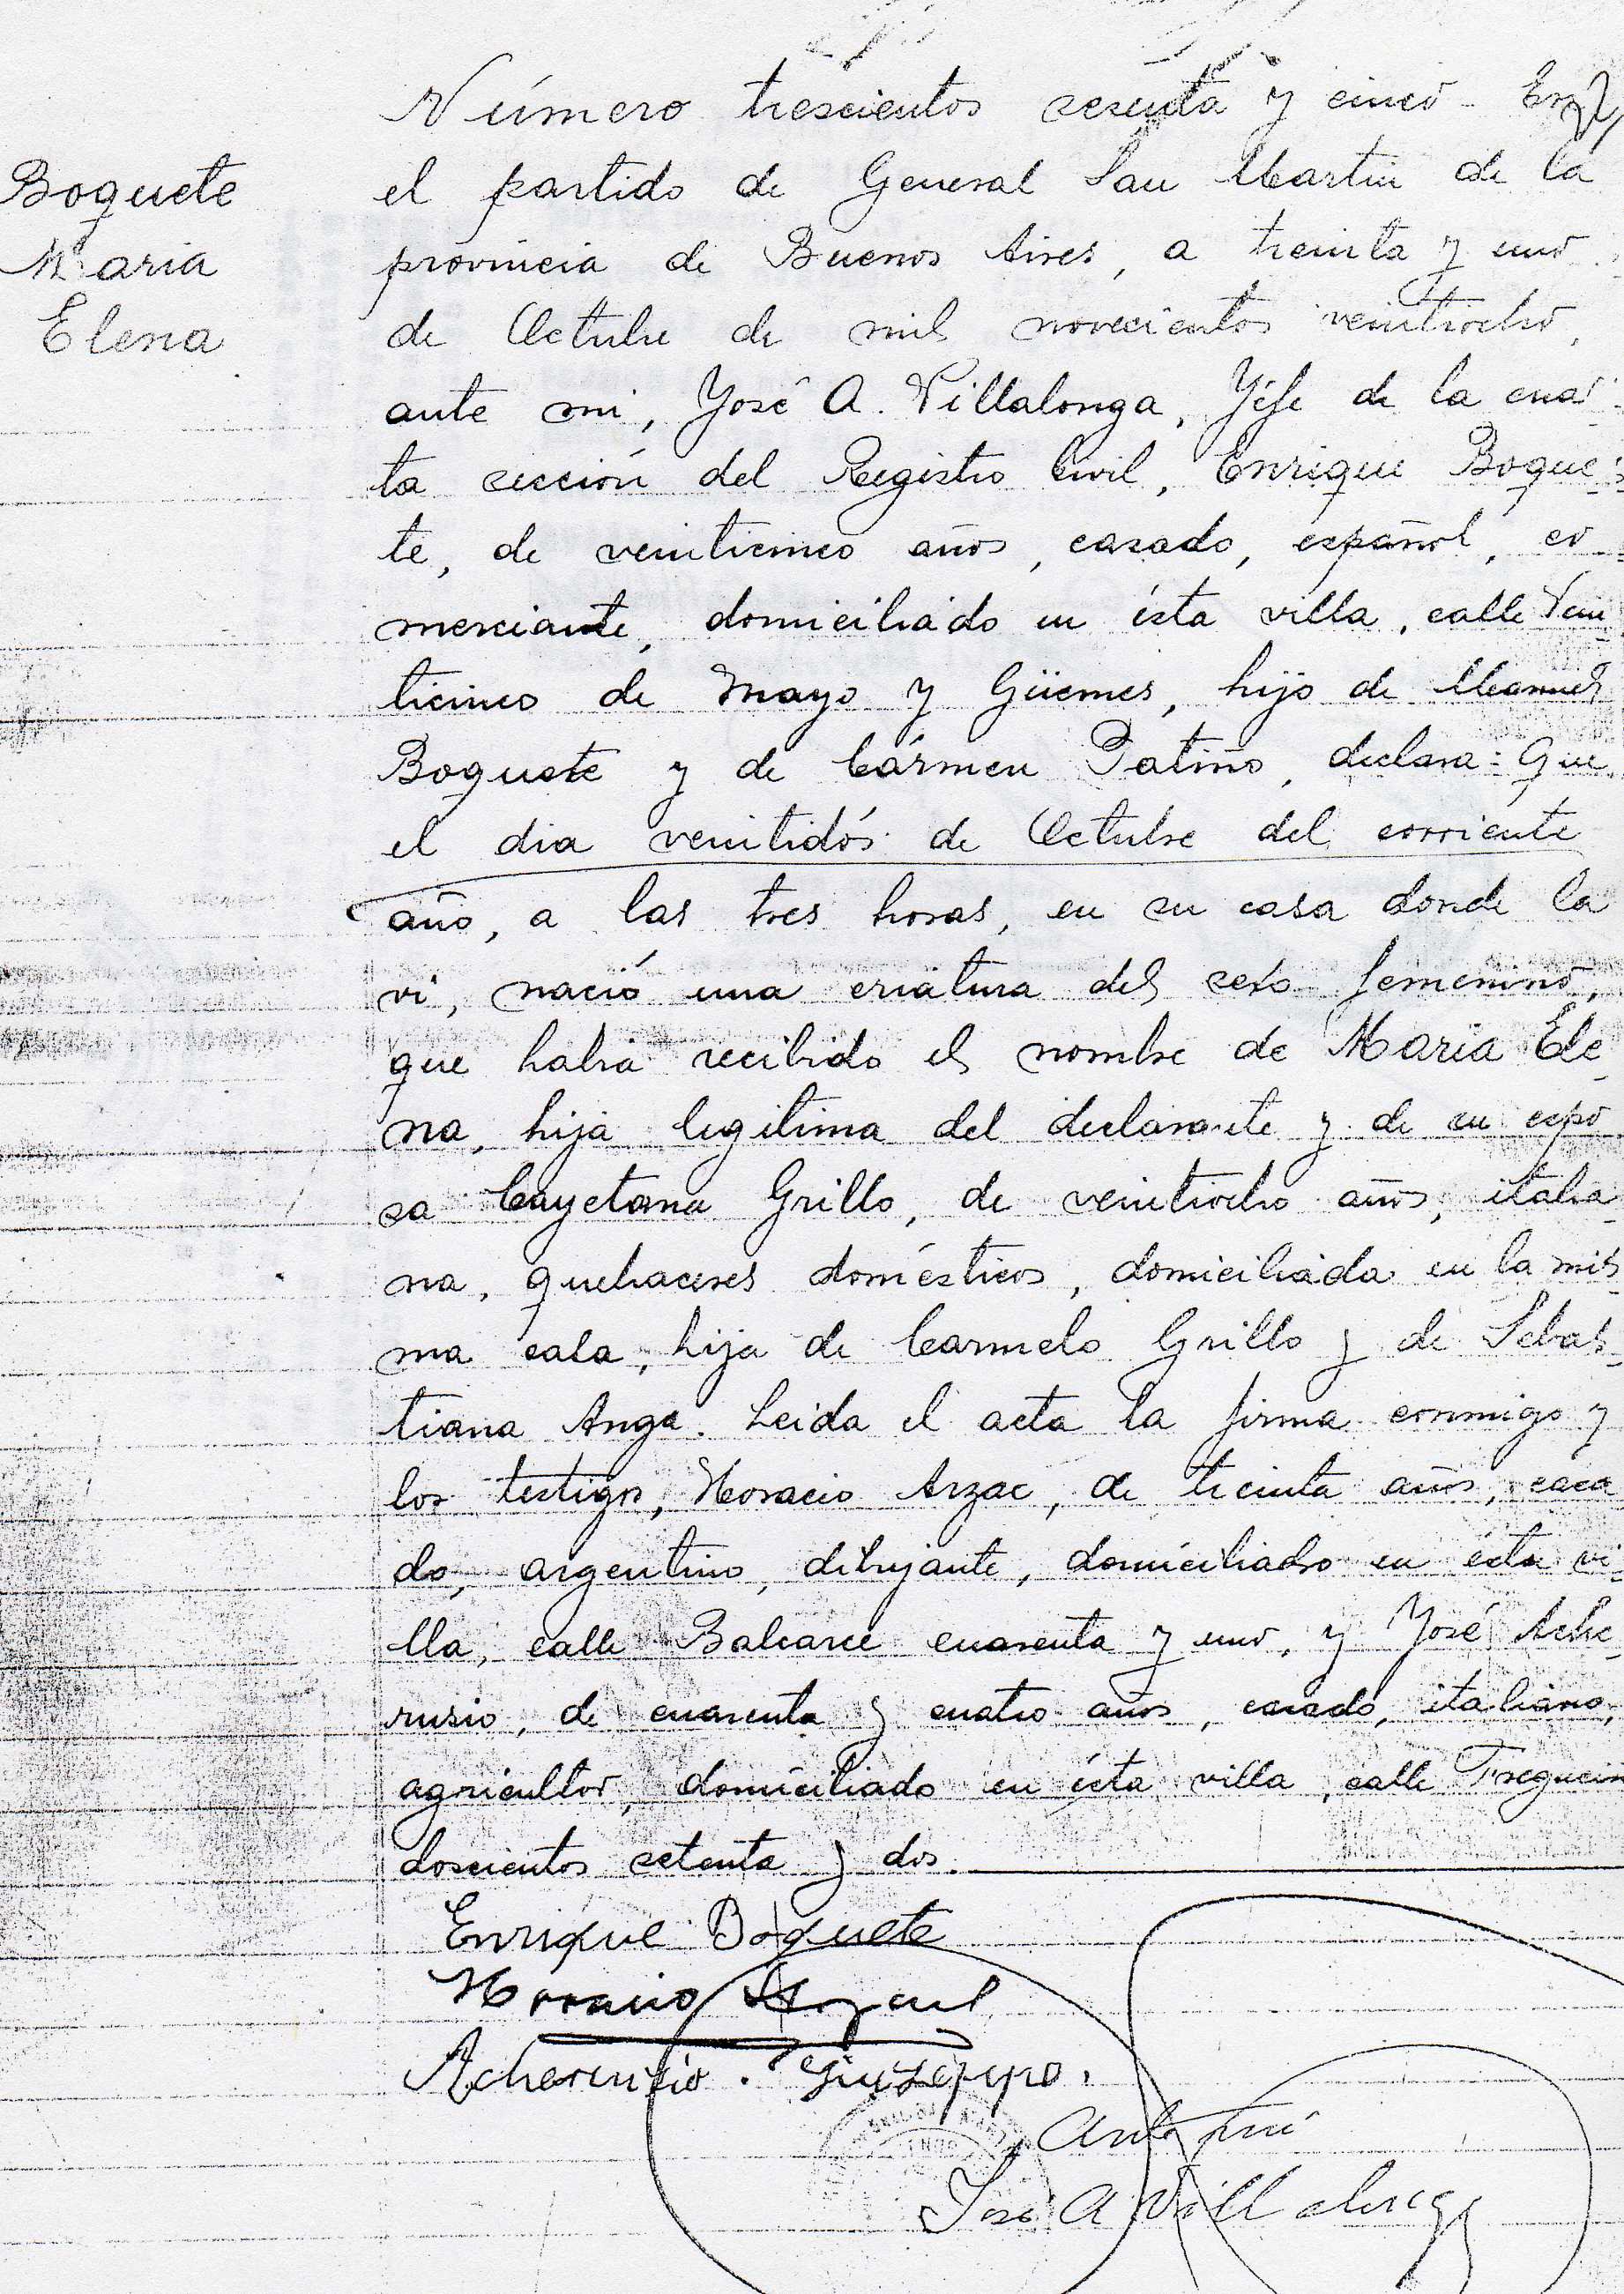 Número trescientos sesenta y cinco - En
Boquete
María
Elena
el partido de General San Martin de la
provincia de Buenos Aires, a treinta y uno
de Octubre de mil novecientos veintiocho,
ante mi, José A. Villalonga, Jefe de la cuar
ta sección del Registro Civil, Enrique Boque-
te, de veinticinco años, casado, español, co-
merciante, domiciliado en ésta villa, calle Vein
ticinco de Mayo y Güemes, hijo de Manuel
Boquete y de Cármen Patiño, declara: Que
el dia veintidós de Octubre del corriente
año, a las tres horas, en su casa donde la
vi, nació una criatura del sexo femenino,
que habia recibido el nombre de María Ele-
na, hija legitima del declarante y de su espo
sa Cayetana Grillo, de veintiocho años, italia
na, quehaceres domésticos, domiciliada en la mis-
ma casa, hija de Carmelo Grillo y de Sebas-
tiana Anga. Leida el acta la firma conmigo y
los testigos, Horacio Arzac, de treinta años, casa
do, argentino, dibujante, domiciliado en ésta vi-
lla, calle Balcarce cuarenta y uno, y José Ache-
rusio, de cuarenta y cuatro años, casado, italiano,
agricultor, domiciliado en ésta villa, calle
doscientos setenta y dos.
Enrique Boquete
Horacio
Acherusio. Giuseppo.
Ante mí
José A Villalonga